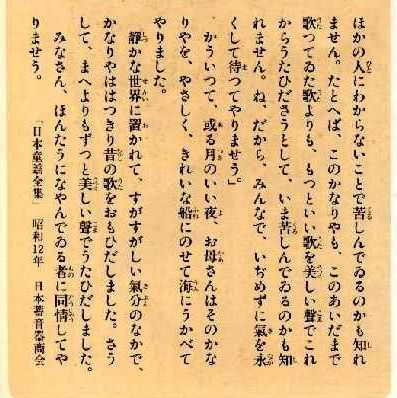 ほかの人にわからないことで苦しんでゐるのかも知れ
ません。たとへば、このかなりやも、このあいだまで
歌つてゐた歌よりも、もつといい歌を美しい聲でこれ
からうたひださうとして、いま苦しんでゐるのかも知
れません。ね、だから、みんなで、いぢめずに氣を永
くして待つてやりませう」。
かういつて、或る月のいい夜、お母さんはそのかな
りやを、やさしく、きれいな船にのせて海にうかべて
やりました。
靜かな世界に置かれて、すがすがしい氣分のなかで、
かなりやははつきり昔の歌をおもひだしました。さう
して、まへよりもずつと美しい聲でうたひだしました。
みなさん、ほんたうになやんでゐる者に同情してや
りませう。　「日本童謡全集」　昭和12年　日本蓄音器商会